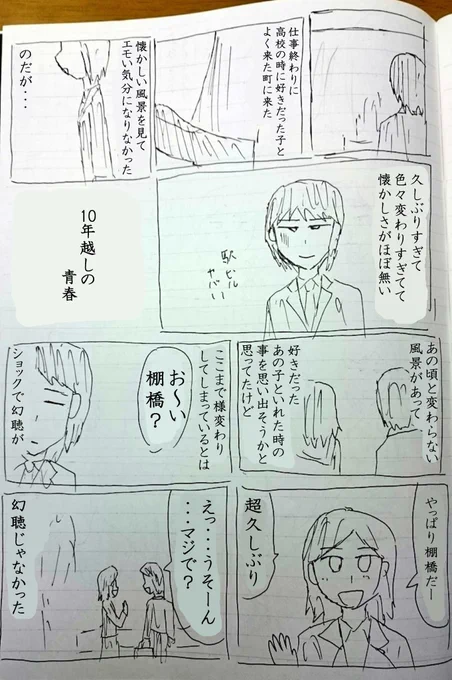 仕事終わりに
高校の時に好きだった子と
よく来た町に来た
懐かしい風景を見て
エモい気分になりなかった
のだが・・・
久しぶりすぎて
色々変わりすぎてて
懐かしさがほぼ無い
駅ビル
ヤバい
10年越しの
青春
あの頃と変わらない
風景があって
好きだった
あの子といれた時の
事を思い出そうかと
思ってたけど
ここまで様変わり
してしまっているとは
お〜い
棚橋？
ショックで幻聴が
やっぱり棚橋だー
超久しぶり
えっ・・・うそーん
・・・マジで？
幻聴じゃなかった